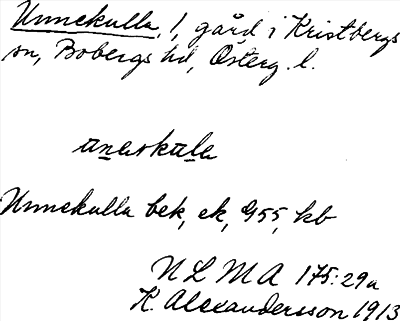 Unnekulla, 1, gård i Kristbergs
sn, Bobergs hd, Österg. l.
aneskula
Unnekulla bek, ek, 955, kb
N L M A 175:29a
K. Alexandersson 1913